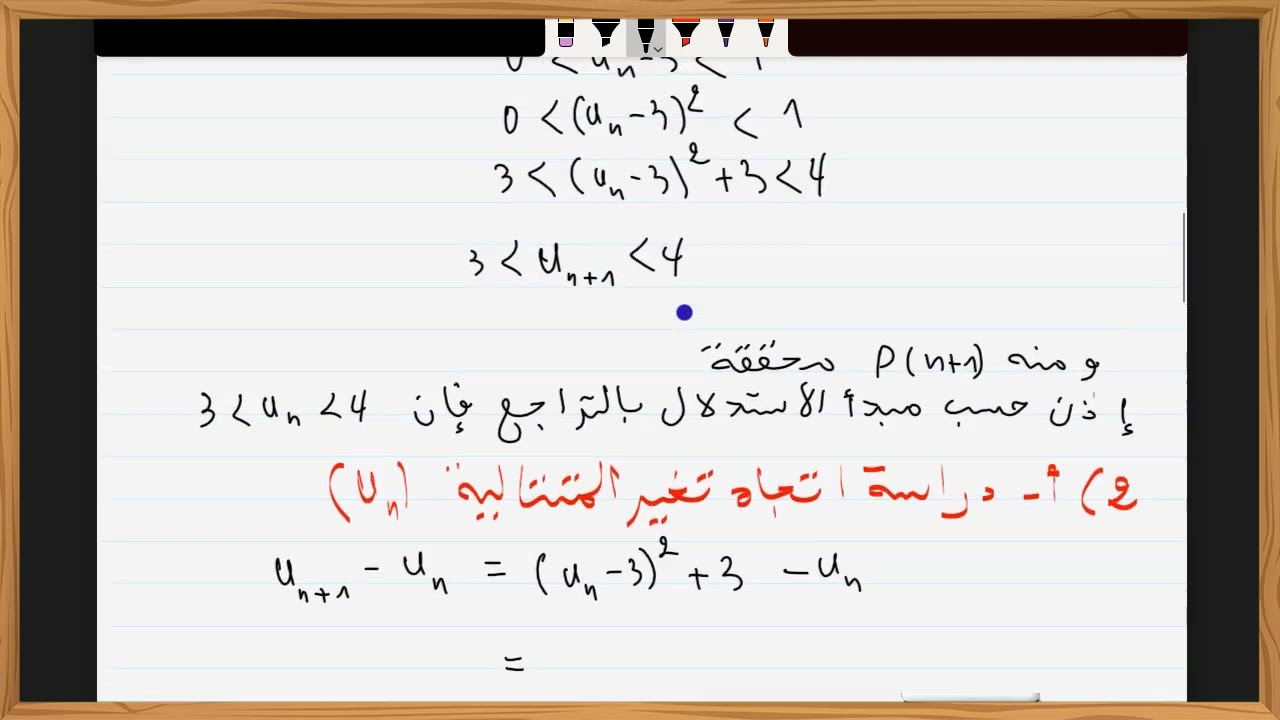 0 < u_n - 3 < 1
0 < (u_n - 3)² < 1
3 < (u_n - 3)² + 3 < 4
3 < u_{n+1} < 4
ومنه P(n+1) محققة
إذن حسب مبدأ الاستدلال بالتراجع فإن 3 < u_n < 4
2) أ- دراسة اتجاه تغير المتتالية (U_n)
u_{n+1} - u_n = (u_n - 3)² + 3 - u_n
=